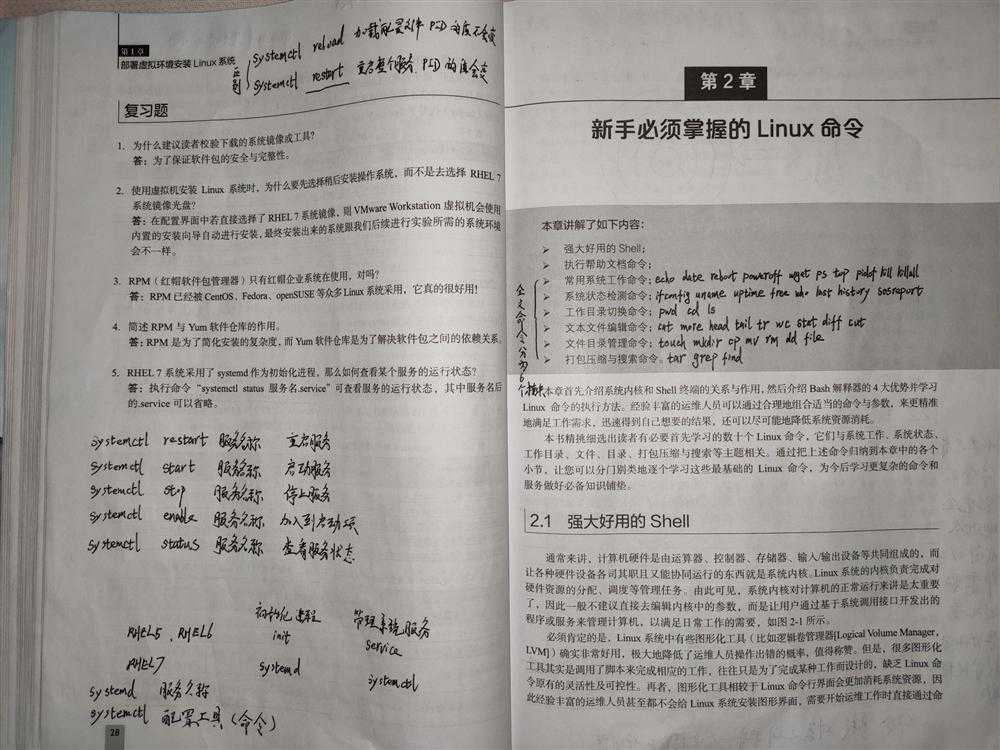 第1章
部署虚拟环境安装 Linux 系统
区别
systemctl reload 加载配置文件 PID的值不会变
systemctl restart 重启整个服务、PID的值会变
复习题
1. 为什么建议读者校验下载的系统镜像或工具?
答:为了保证软件包的安全与完整性。
2. 使用虚拟机安装 Linux 系统时,为什么要先选择稍后安装操作系统,而不是去选择 RHEL 7
系统镜像光盘?
答:在配置界面中若直接选择了 RHEL 7 系统镜像,则 VMware Workstation 虚拟机会使用
内置的安装向导自动进行安装,最终安装出来的系统跟我们后续进行实验所需的系统环境
会不一样。
3. RPM(红帽软件包管理器)只有红帽企业系统在使用,对吗?
答:RPM 已经被 CentOS、Fedora、openSUSE 等众多 Linux 系统采用,它真的很好用!
4. 简述 RPM 与 Yum 软件仓库的作用。
答:RPM 是为了简化安装的复杂度,而 Yum 软件仓库是为了解决软件包之间的依赖关系。
5. RHEL 7 系统采用了 systemd 作为初始化进程,那么如何查看某个服务的运行状态?
答:执行命令“systemctl status 服务名.service”可查看服务的运行状态,其中服务名后
的.service 可以省略。
systemctl restart 服务名称 重启服务
systemctl start 服务名称 启动服务
systemctl stop 服务名称 停止服务
systemctl enable 服务名称 加入到启动项
systemctl status 服务名称 查看服务状态
初始化进程 管理系统服务
RHEL5、RHEL6 init service
RHEL7 systemd systemctl
systemd 服务名称
systemctl 配置工具(命令)
28
第 2 章
新手必须掌握的 Linux 命令
本章讲解了如下内容:
➢ 强大好用的 Shell;
➢ 执行帮助文档命令;
➢ 常用系统工作命令;echo date reboot poweroff wget ps top pidof kill killall
➢ 系统状态检测命令;ifconfig uname uptime free who last history sosreport
➢ 工作目录切换命令;pwd cd ls
➢ 文本文件编辑命令;cat more head tail tr wc stat diff cut
➢ 文件目录管理命令;touch mkdir cp mv rm dd file
➢ 打包压缩与搜索命令。tar grep find
命令分为6个模块
本章首先介绍系统内核和 Shell 终端的关系与作用,然后介绍 Bash 解释器的 4 大优势并学习
Linux 命令的执行方法。经验丰富的运维人员可以通过合理地组合适当的命令与参数,来更精准
地满足工作需求,迅速得到自己想要的结果,还可以尽可能地降低系统资源消耗。
本书精挑细选出读者有必要首先学习的数十个 Linux 命令,它们与系统工作、系统状态、
工作目录、文件、目录、打包压缩与搜索等主题相关。通过把上述命令归纳到本章中的各个
小节,让您可以分门别类地逐个学习这些最基础的 Linux 命令,为今后学习更复杂的命令和
服务做好必备知识铺垫。
2.1 强大好用的 Shell
通常来讲,计算机硬件是由运算器、控制器、存储器、输入/输出设备等共同组成的,而
让各种硬件设备各司其职且又能协同运行的东西就是系统内核。Linux 系统的内核负责完成对
硬件资源的分配、调度等管理任务。由此可见,系统内核对计算机的正常运行来讲是太重要
了,因此一般不建议直接去编辑内核中的参数,而是让用户通过基于系统调用接口开发出的
程序或服务来管理计算机,以满足日常工作的需要,如图 2-1 所示。
必须肯定的是,Linux 系统中有些图形化工具(比如逻辑卷管理器[Logical Volume Manager,
LVM])确实非常好用,极大地降低了运维人员操作出错的概率,值得称赞。但是,很多图形化
工具其实是调用了脚本来完成相应的工作,往往只是为了完成某种工作而设计的,缺乏 Linux 命
令原有的灵活性及可控性。再者,图形化工具相较于 Linux 命令行界面会更加消耗系统资源,因
此经验丰富的运维人员甚至都不会给 Linux 系统安装图形界面,需要开始运维工作时直接通过命